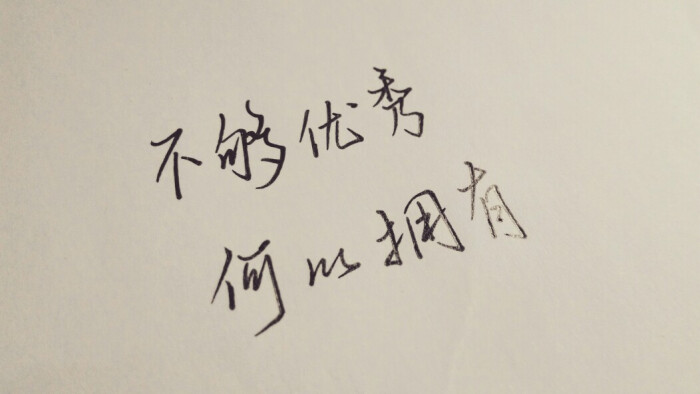 不够优秀
何以拥有